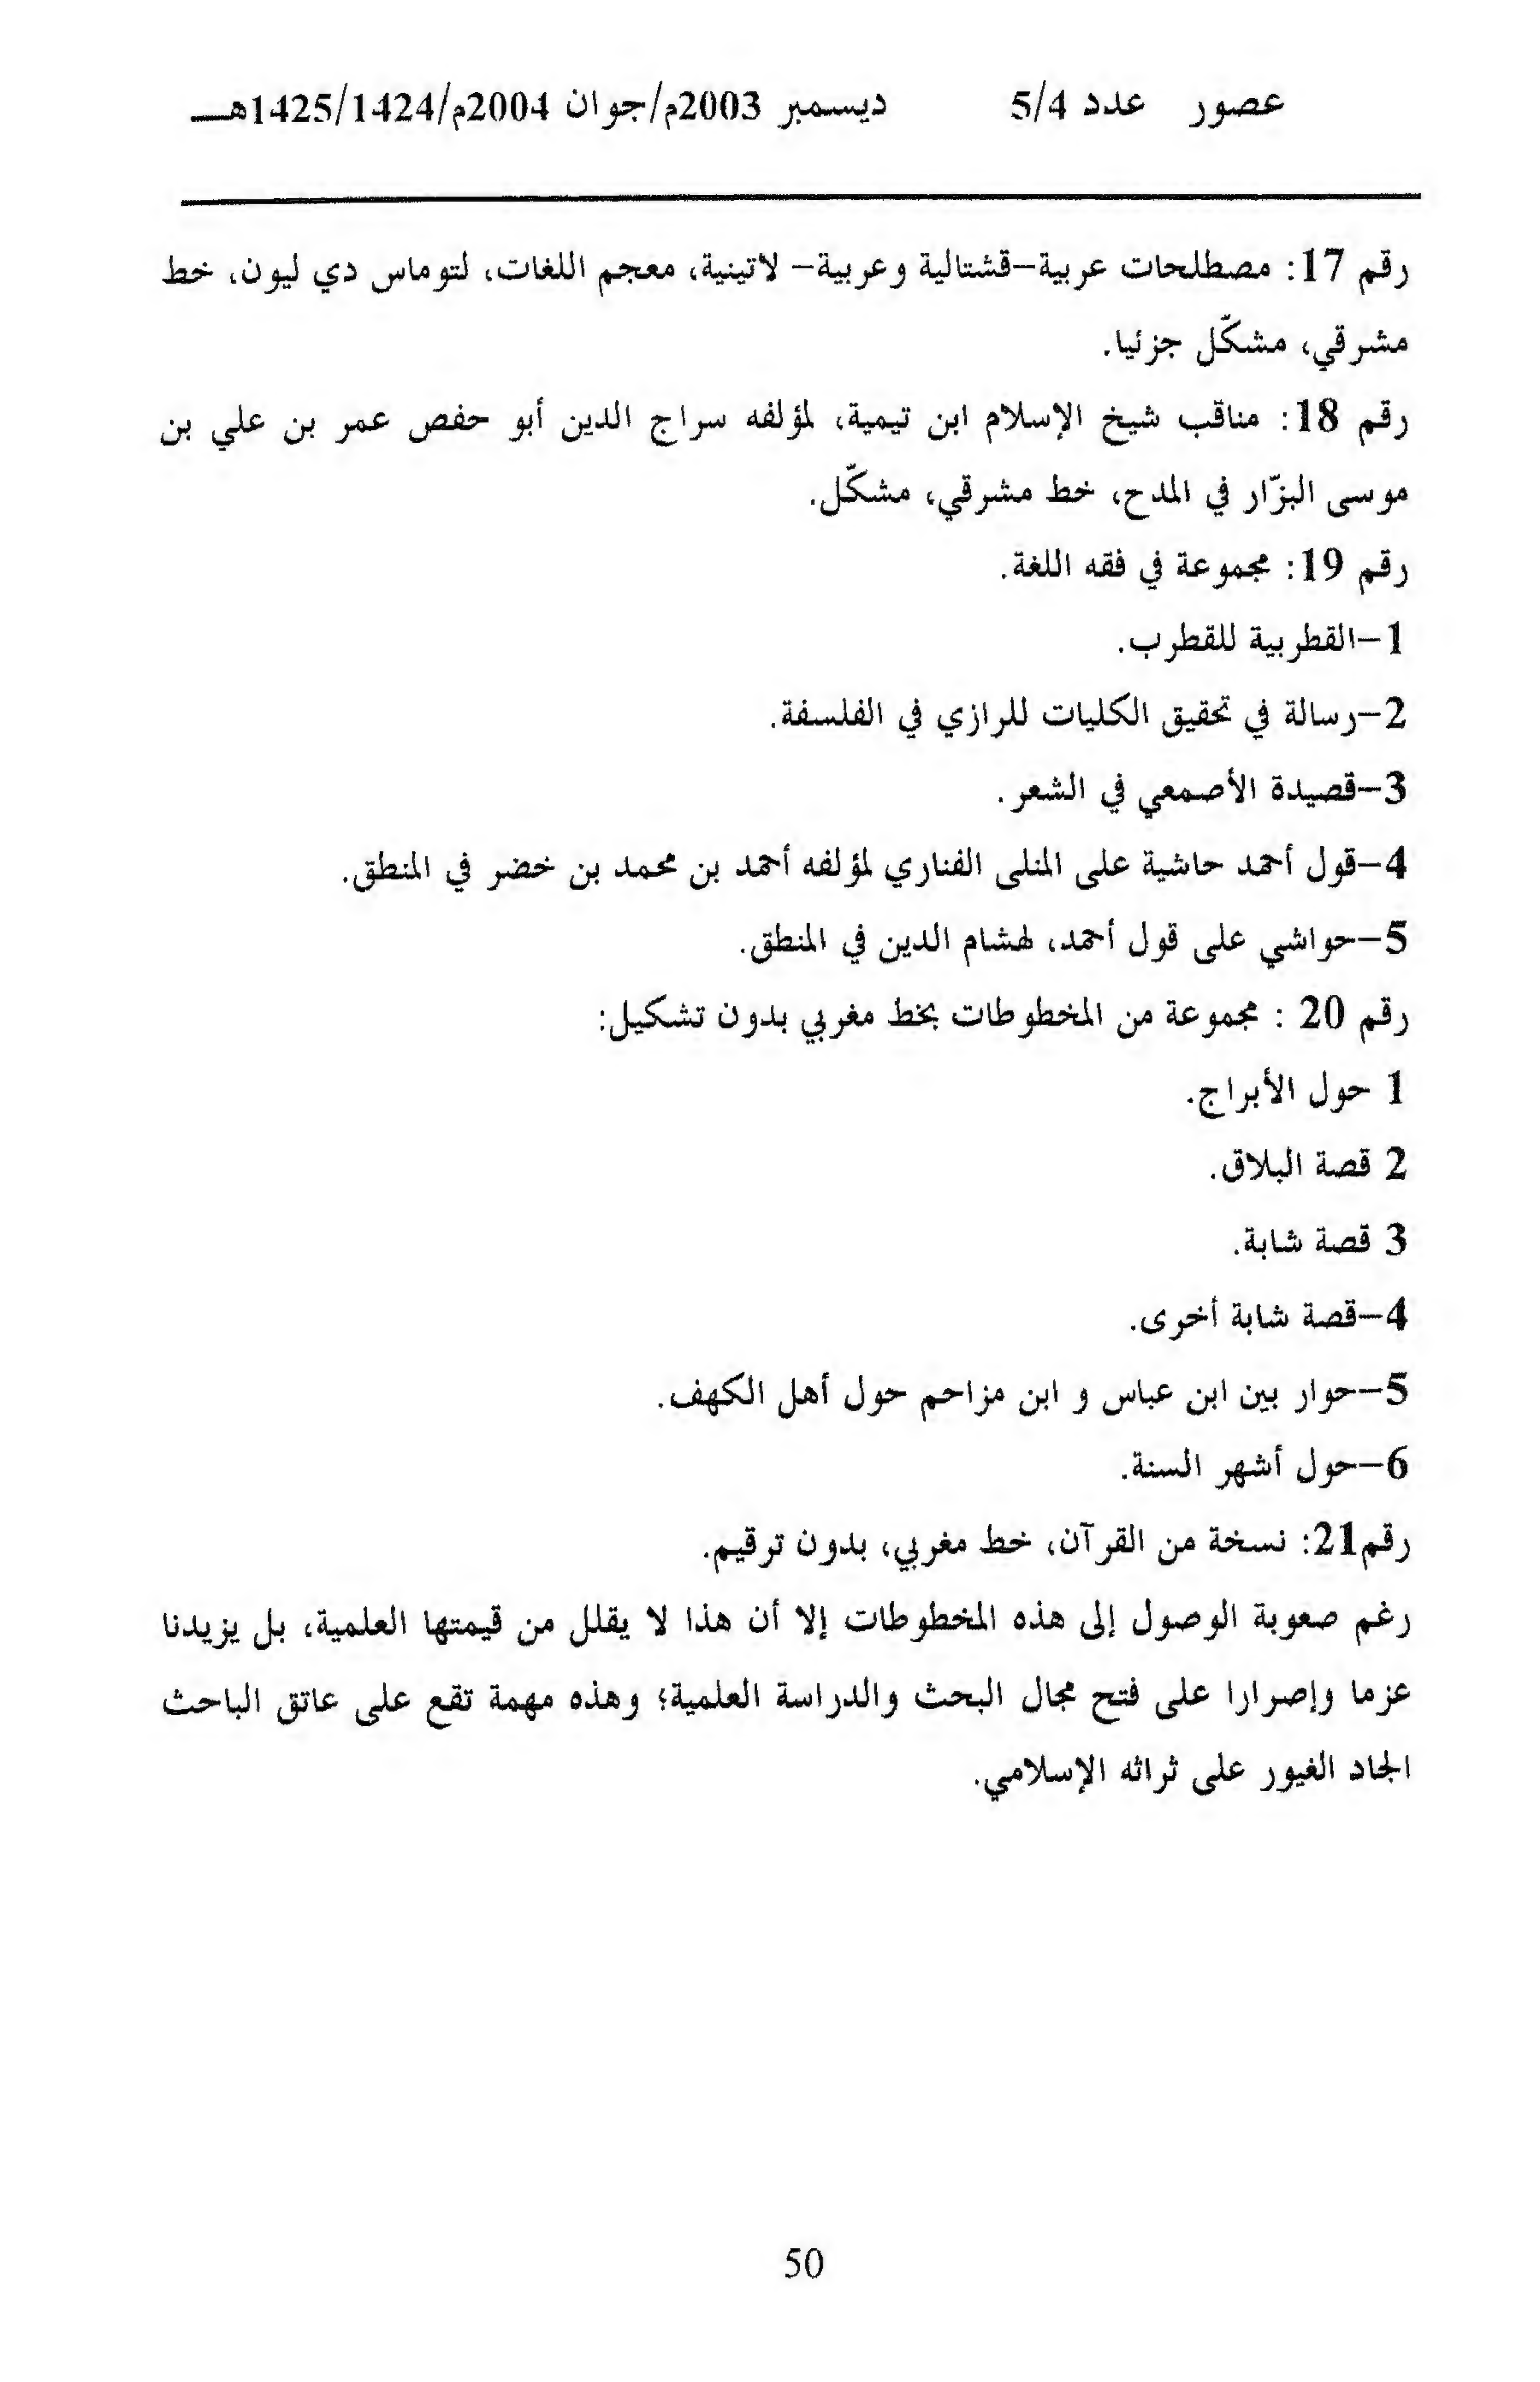 عصور عدد 5/4 ديسمبر 2003م/جوان 2004م/1425/1424هـ
رقم 17: مصطلحات عربية–قشتالية وعربية– لاتينية، معجم اللغات، لتوماس دي ليون، خط
مشرقي، مشكّل جزئيا.
رقم 18: مناقب شيخ الإسلام ابن تيمية، لمؤلفه سراج الدين أبو حفص عمر بن علي بن
موسى البزّار في المدح، خط مشرقي، مشكّل.
رقم 19: مجموعة في فقه اللغة.
1–القطربية للقطرب.
2–رسالة في تحقيق الكليات للرازي في الفلسفة.
3–قصيدة الأصمعي في الشعر.
4–قول أحمد حاشية على المنلى الفناري لمؤلفه أحمد بن محمد بن خضر في المنطق.
5–حواشي على قول أحمد، لهشام الدين في المنطق.
رقم 20 : مجموعة من المخطوطات بخط مغربي بدون تشكيل:
1 حول الأبراج.
2 قصة البلاق.
3 قصة شابة.
4–قصة شابة أخرى.
5–حوار بين ابن عباس و ابن مزاحم حول أهل الكهف.
6–حول أشهر السنة.
رقم21: نسخة من القرآن، خط مغربي، بدون ترقيم.
رغم صعوبة الوصول إلى هذه المخطوطات إلا أن هذا لا يقلل من قيمتها العلمية، بل يزيدنا
عزما وإصرارا على فتح مجال البحث والدراسة العلمية؛ وهذه مهمة تقع على عاتق الباحث
الجاد الغيور على ثراثه الإسلامي.
50